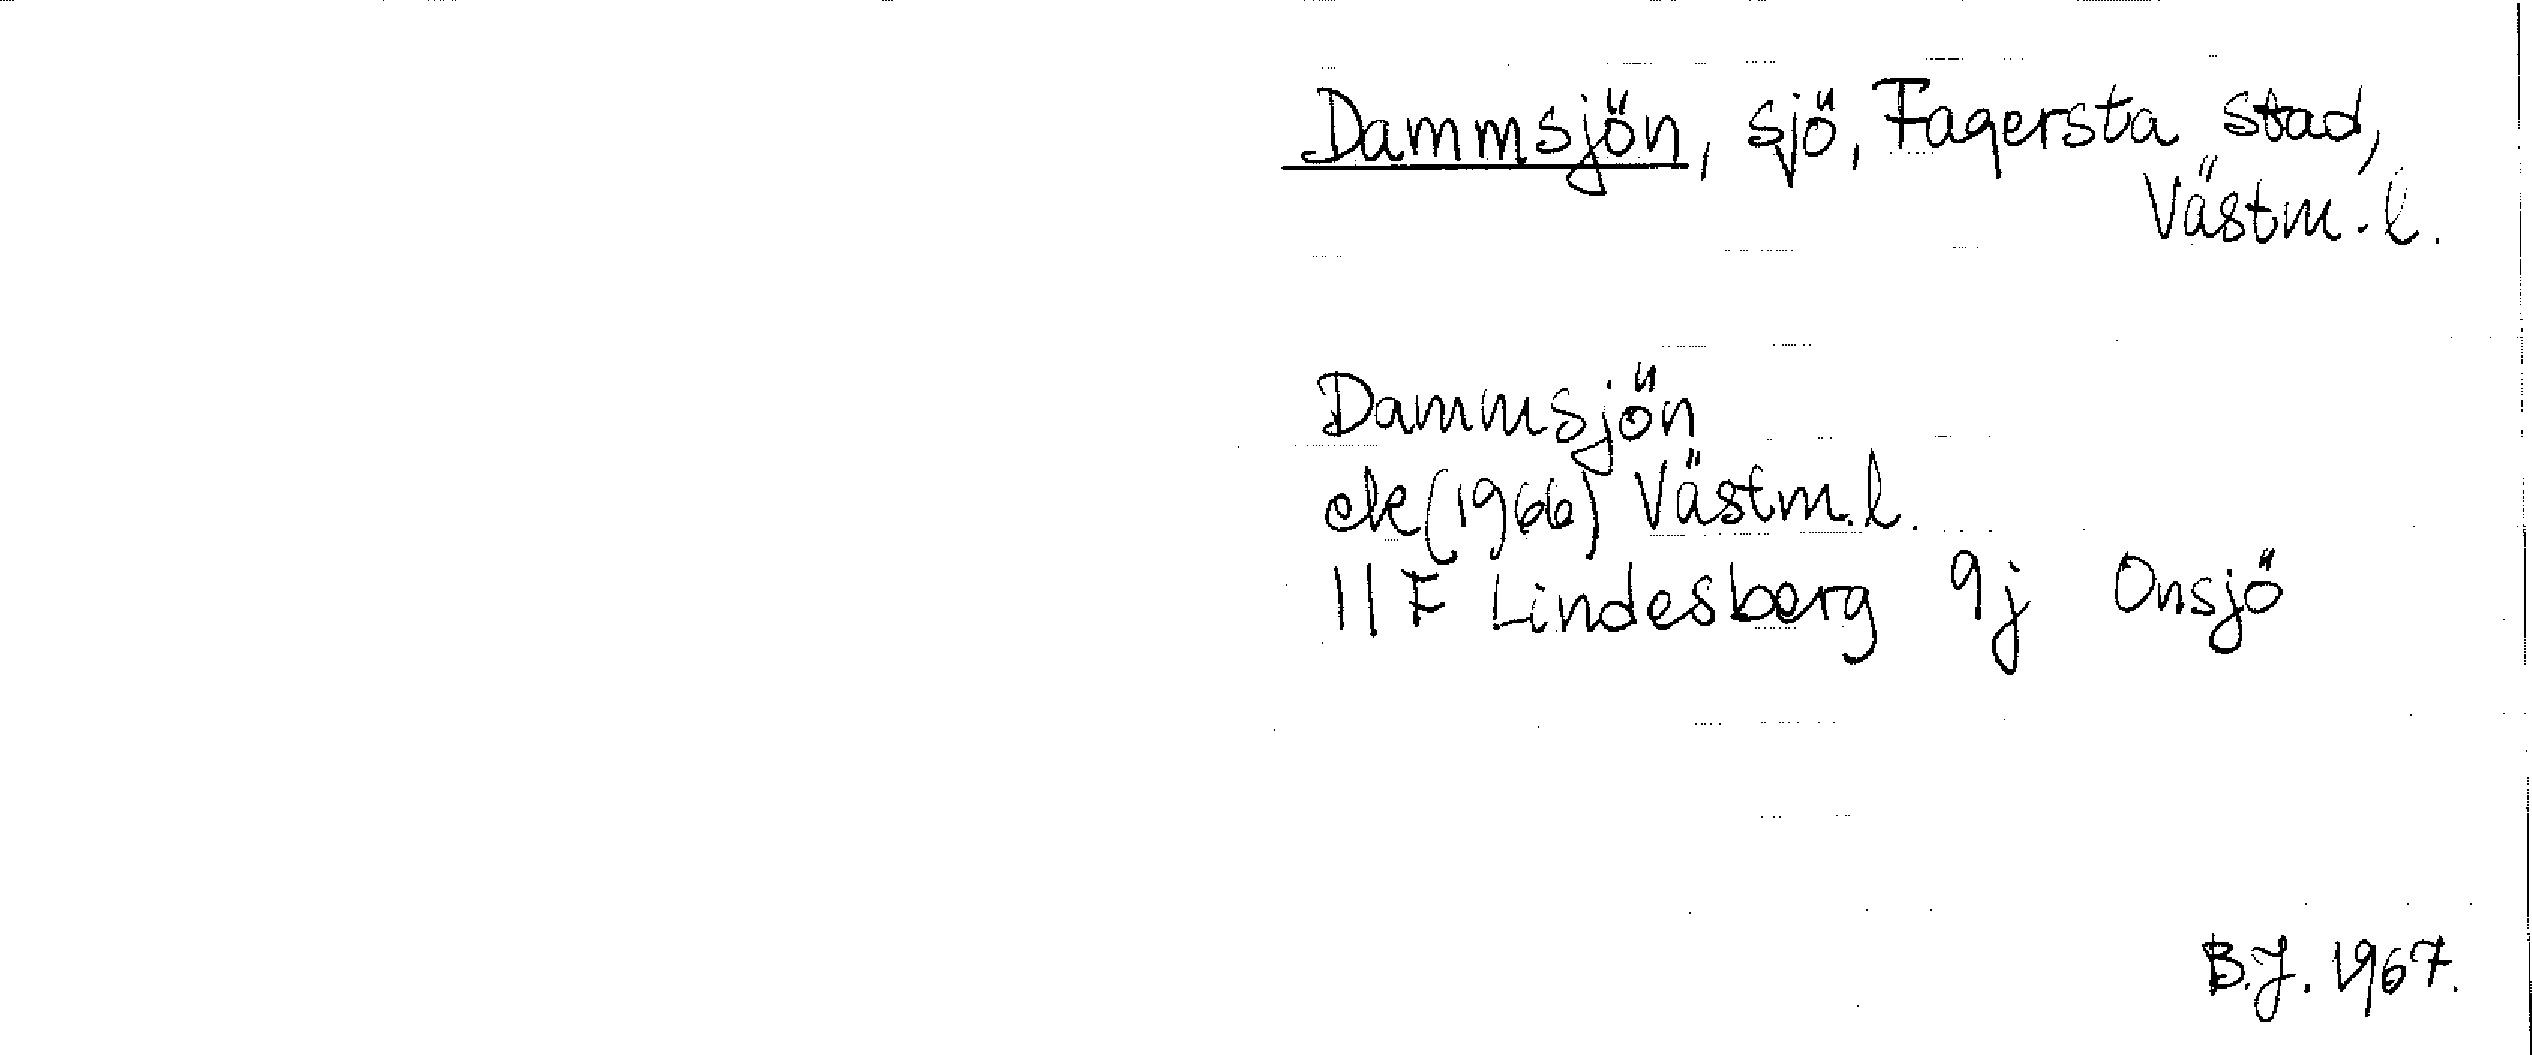 Dammsjön, sjö, Fagersta stad,
Västm.l.
Dammsjön
ek (1966) Västm.l.
11F Lindesberg 9j Onsjö
B.J. 1967.